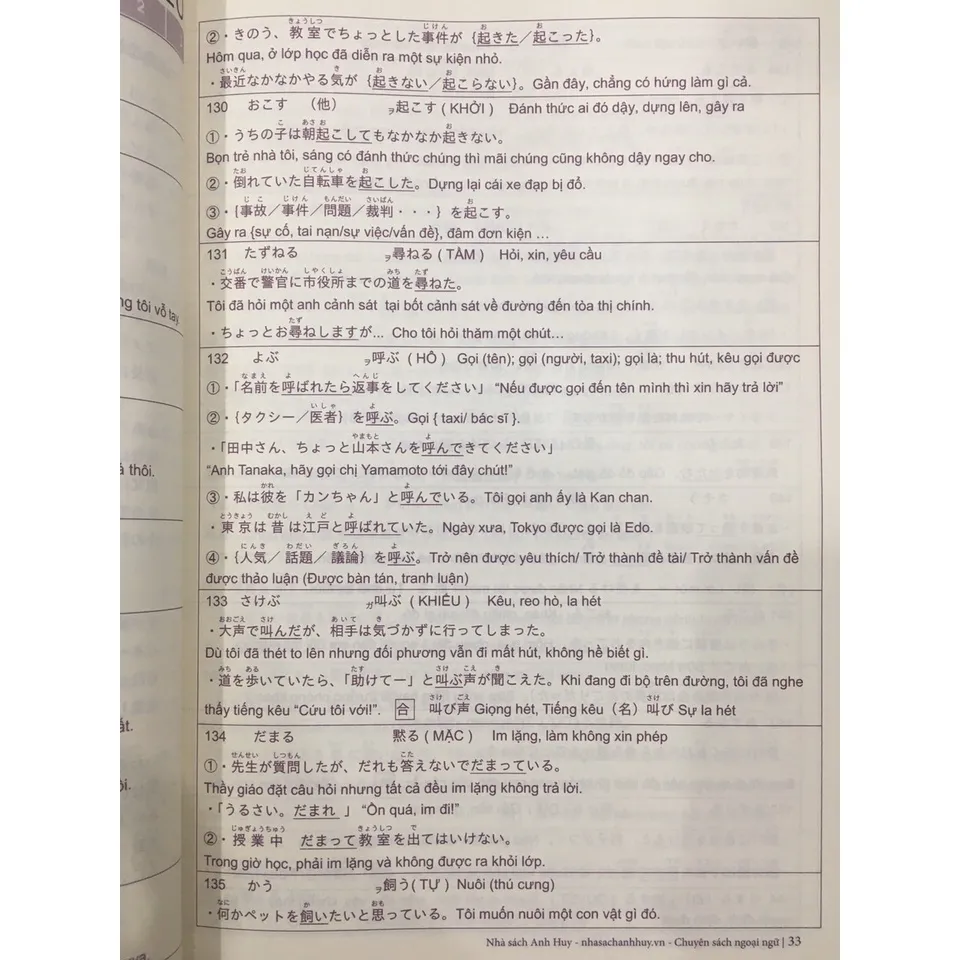 ②・きのう、教室でちょっとした事件が {起きた／起こった}。
Hôm qua, ở lớp học đã diễn ra một sự kiện nhỏ.
・最近なかなかやる気が {起きない／起こらない}。Gần đây, chẳng có hứng làm gì cả.
130 おこす （他） ヲ起こす (KHỞI) Đánh thức ai đó dậy, dựng lên, gây ra
①・うちの子は朝起こしてもなかなか起きない。
Bọn trẻ nhà tôi, sáng có đánh thức chúng thì mãi chúng cũng không dậy ngay cho.
②・倒れていた自転車を起こした。Dựng lại cái xe đạp bị đổ.
③・{事故／事件／問題／裁判・・・} を起こす。
Gây ra {sự cố, tai nạn/sự việc/vấn đề}, đâm đơn kiện …
131 たずねる ヲ尋ねる ( TẦM ) Hỏi, xin, yêu cầu
・交番で警官に市役所までの道を尋ねた。
Tôi đã hỏi một anh cảnh sát tại bốt cảnh sát về đường đến tòa thị chính.
・ちょっとお尋ねしますが... Cho tôi hỏi thăm một chút…
132 よぶ ヲ呼ぶ ( HÔ ) Gọi (tên); gọi (người, taxi); gọi là; thu hút, kêu gọi được
①・「名前を呼ばれたら返事をしてください」 “Nếu được gọi đến tên mình thì xin hãy trả lời”
②・{タクシー／医者} を呼ぶ。Gọi { taxi/ bác sĩ }.
・「田中さん、ちょっと山本さんを呼んできてください」
“Anh Tanaka, hãy gọi chị Yamamoto tới đây chút!”
③・私は彼を「カンちゃん」と呼んでいる。Tôi gọi anh ấy là Kan chan.
・東京は昔は江戸と呼ばれていた。Ngày xưa, Tokyo được gọi là Edo.
④・{人気／ 話題／ 議論} を呼ぶ。Trở nên được yêu thích/ Trở thành đề tài/ Trở thành vấn đề
được thảo luận (Được bàn tán, tranh luận)
133 さけぶ ガ叫ぶ (KHIẾU) Kêu, reo hò, la hét
・大声で叫んだが、相手は気づかずに行ってしまった。
Dù tôi đã thét to lên nhưng đối phương vẫn đi mất hút, không hề biết gì.
・道を歩いていたら、「助けてー」と叫ぶ声が聞こえた。Khi đang đi bộ trên đường, tôi đã nghe
thấy tiếng kêu “Cứu tôi với!”. 合 叫び声 Giọng hét, Tiếng kêu（名）叫び Sự la hét
134 だまる 黙る ( MẶC ) Im lặng, làm không xin phép
①・先生が質問したが、だれも答えないでだまっている。
Thầy giáo đặt câu hỏi nhưng tất cả đều im lặng không trả lời.
・「うるさい。だまれ 」 “Ồn quá, im đi!”
②・授業中 だまって教室を出てはいけない。
Trong giờ học, phải im lặng và không được ra khỏi lớp.
135 かう ヲ飼う ( TỰ ) Nuôi (thú cưng)
・何かペットを飼いたいと思っている。Tôi muốn nuôi một con vật gì đó.
Nhà sách Anh Huy - nhasachanhhuy.vn - Chuyên sách ngoại ngữ | 33